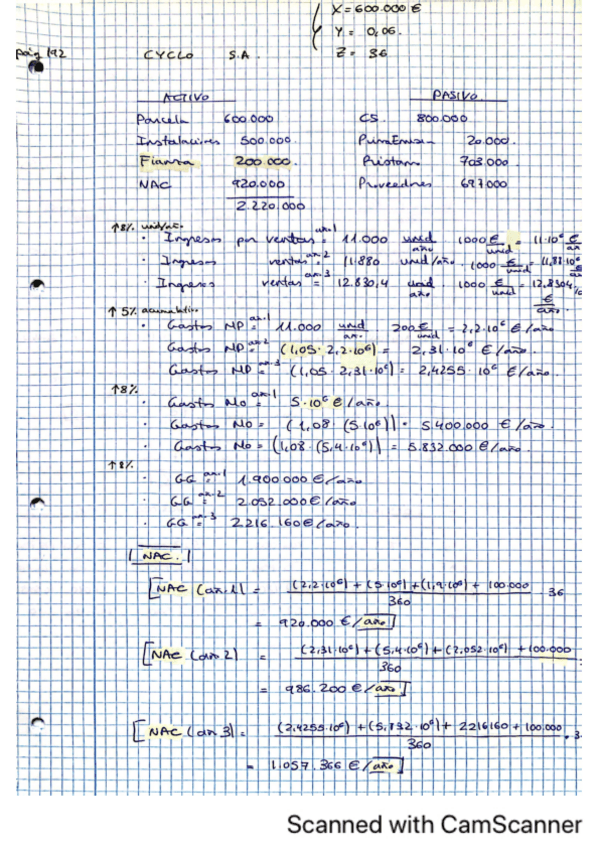 X = 600.000 €
Y = 0,06.
Z = 36
pág 192 CYCLO S.A.
ACTIVO PASIVO
Parcela 600.000 CS. 800.000
Instalaciones 500.000. Prima Emisión 20.000.
Fianza 200.000. Préstamo 703.000
NAC 920.000 Proveedores 697.000
2.220.000
↑8% unid/año
· Ingresos por ventas año 1 = 11.000 unid/año · 1000 €/unid = 11·10⁶ €/año
· Ingresos ventas año 2 = 11.880 unid/año · 1000 €/unid = 11,88·10⁶ €/año
Ingresos ventas año 3 = 12.830,4 unid/año · 1000 €/unid = 12,8304 €/año
↑ 5% acumulativo
· Gastos MP año 1 = 11.000 unid/año 200 €/unid = 2,2·10⁶ €/año
Gastos MP año 2 = (1,05 · 2,2·10⁶) = 2,31·10⁶ €/año.
Gastos MP año 3 = (1,05 · 2,31·10⁶) = 2,4255·10⁶ €/año.
↑8%
· Gastos MO año 1 = 5·10⁶ €/año.
· Gastos MO = (1,08 (5·10⁶)) = 5.400.000 €/año.
· Gastos MO = (1,08 · (5,4·10⁶)) = 5.832.000 €/año.
↑8%
· GG año 1 = 1.900.000 €/año
· GG año 2 = 2.052.000 €/año
· GG año 3 = 2.216.160 €/año.
| NAC. |
[NAC (año 1) = (2,2·10⁶) + (5·10⁶) + (1,9·10⁶) + 100.000 / 360 · 36
= 920.000 €/año]
[NAC (año 2) = (2,31·10⁶) + (5,4·10⁶) + (2,052·10⁶) + 100.000 / 360
= 986.200 €/año]
[NAC (año 3) = (2,4255·10⁶) + (5,832·10⁶) + 2216160 + 100.000 / 360 · 3
= 1.057.366 €/año]
Scanned with CamScanner